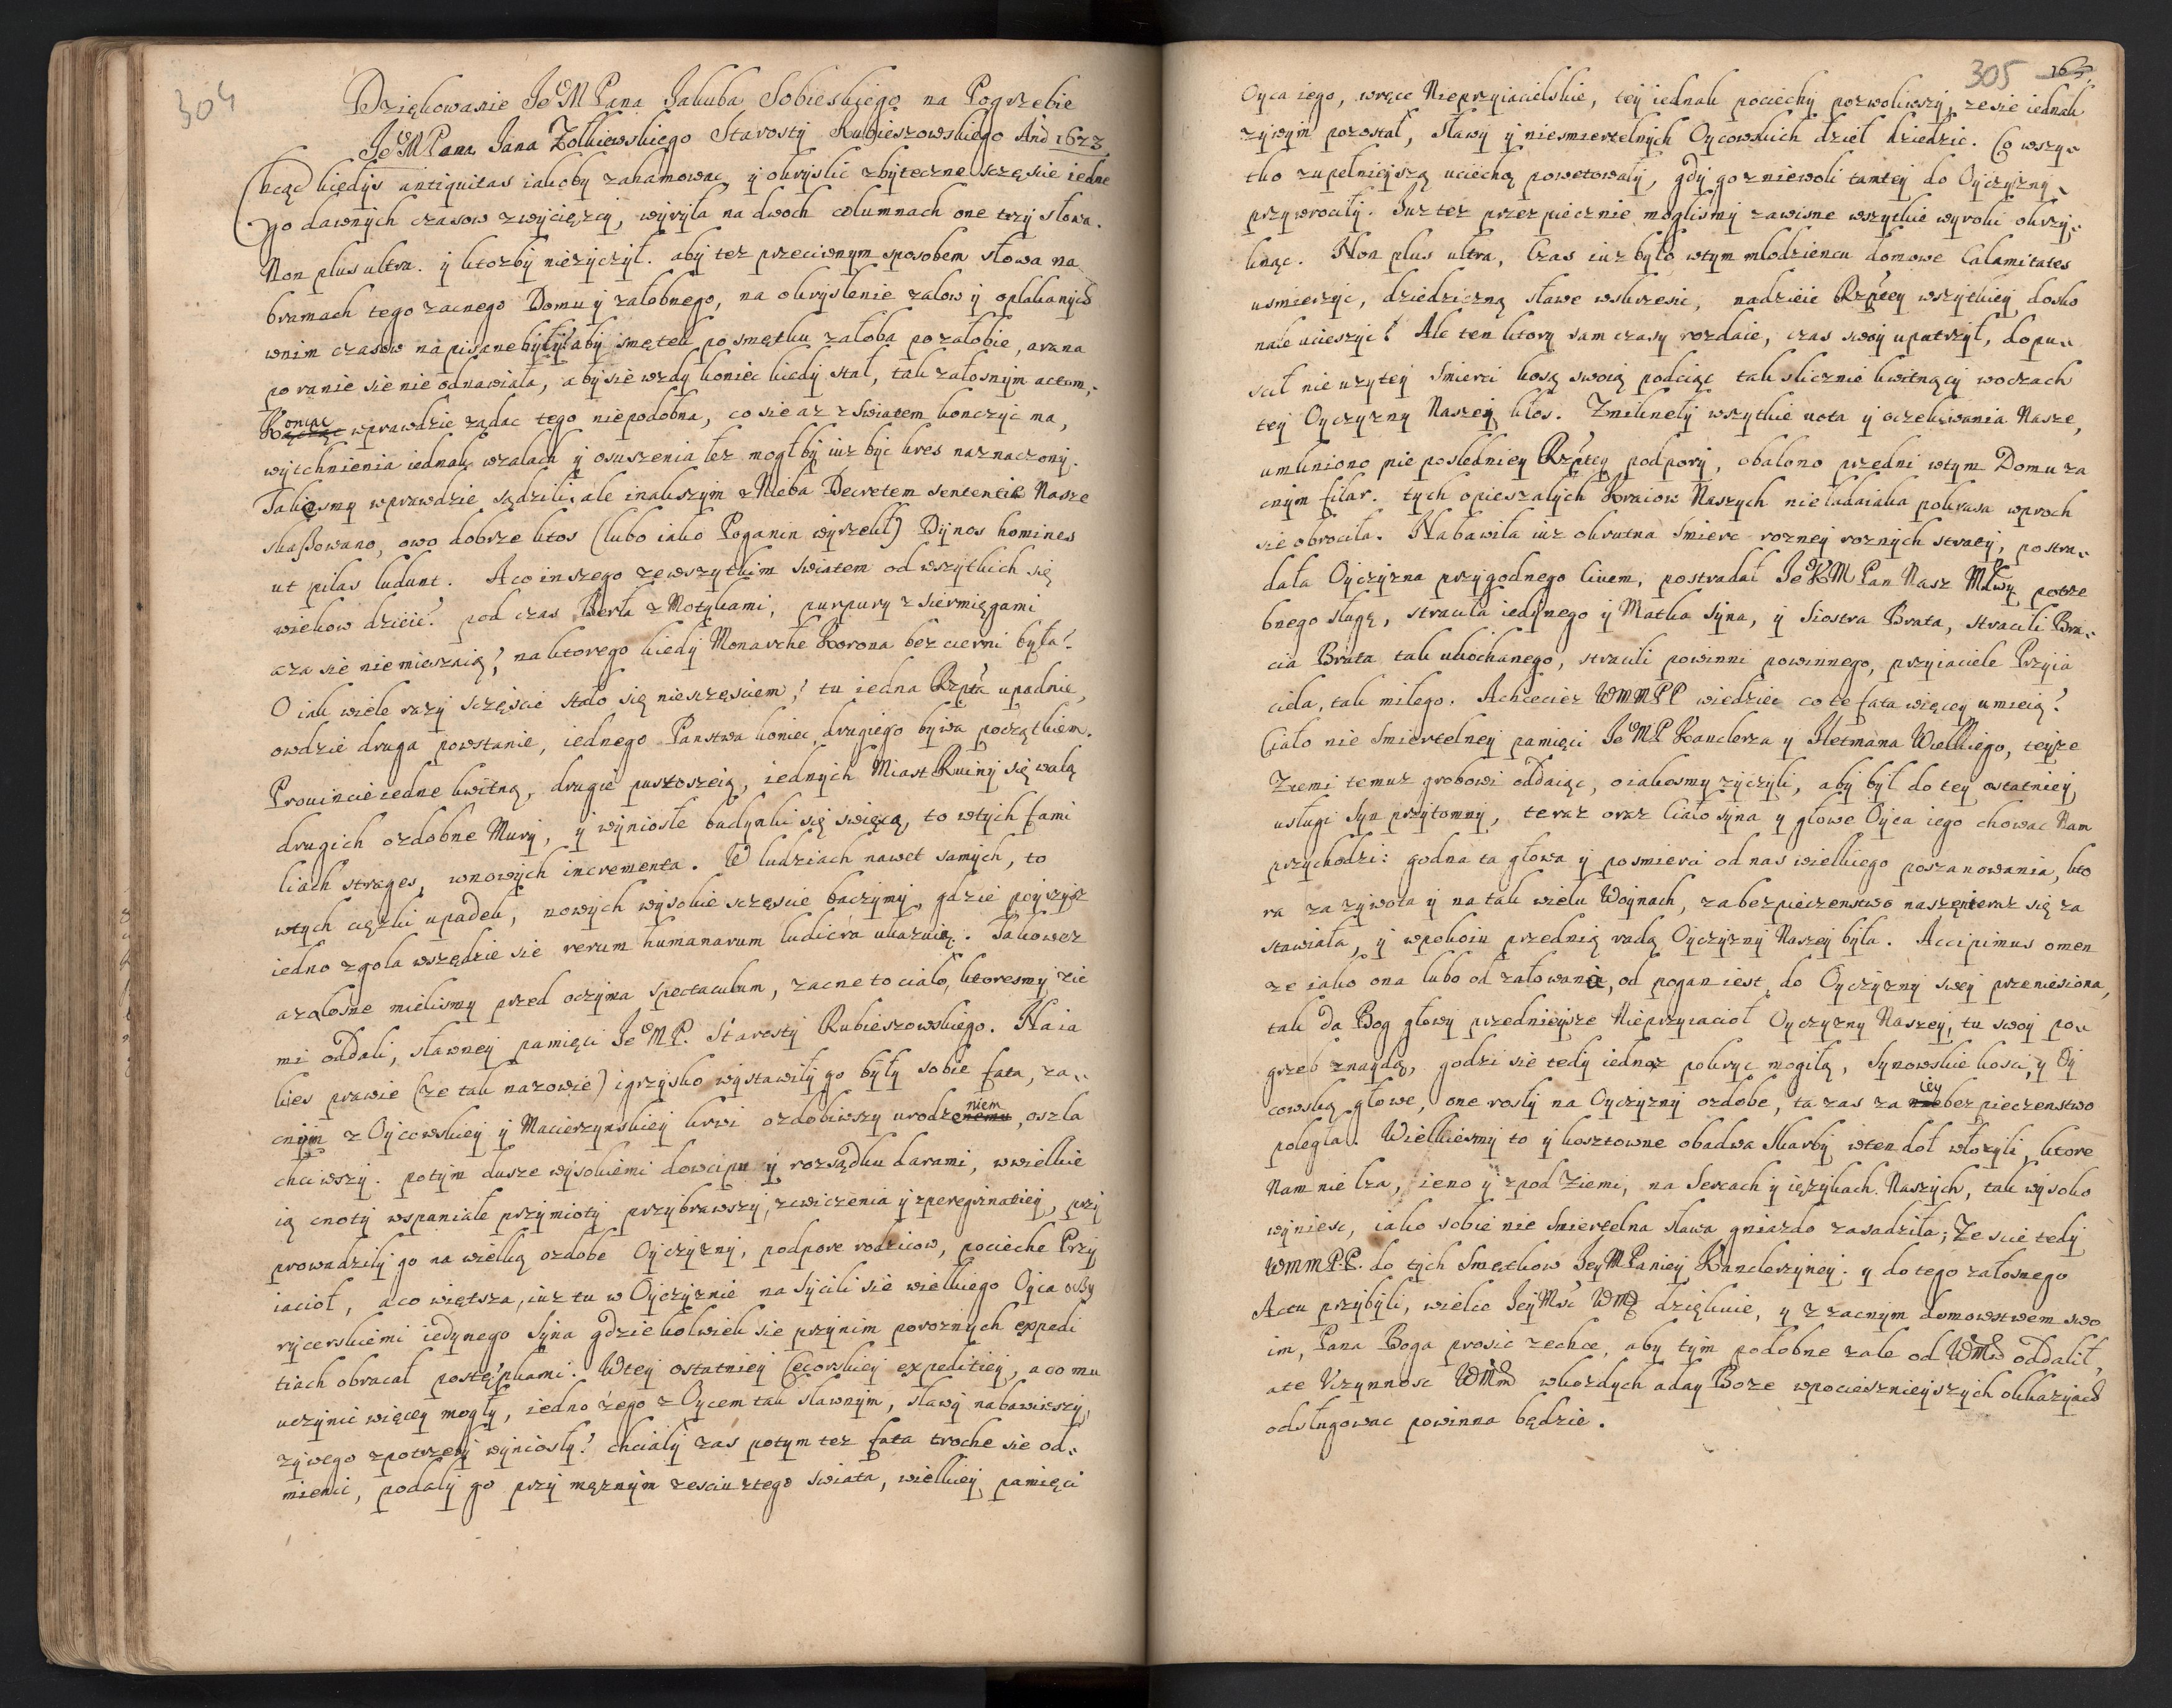 304
Dziękowanie JeoM Pana Jakuba Sobieskięgo na Pogrzebie
JeoM Pana Jana Zołkiewskiego Starosty Rubieszowskiego Ano 1623
Chcąc kiedys antiquitas iakoby zahamowac, y okryslic zbyteczne sczęscie iedne
go dawnych czasow zwycięzcy, wyryła na dwoch columnach one trzy słowa.
Non plus ultra. y ktozby nie zyczył. aby tez przeciwnym sposobem słowa na
bramach tego zacnego Domu y załobnego, na okryslenie zalow y opłakanych
wnim czasow napisane były? aby smętek po smętku załoba po załobie, a rana
po ranie sie nie odnawiała, aby sie wzdy koniec kiedy stał, tak załosnym actom,
Koniac wprawdzie ządac tego niepodobna, co sie az z swiatem konczyc ma,
wytchnienia iednak wzalach y osuszenia łez mogłby iuz byc kres naznaczony.
Takesmy wprawdzie sądzili, ale inakszym z Nieba Decretem sententie Nasze
skaßowano, owo dobrze ktos (lubo iako Poganin wyrzekł) Dij nos homines
ut pilas ludunt. A co inszego ze wszytkim swiatem od wszytkich się
wiekow dzieie? pod czas Berła z Motykami, purpury z siermięgami
aza sie nie mieszaią? na ktorego kiedy Monarche Korona bez cierni była?
O iak wiele razy sczęscie stało się niesczęsciem? tu iedna Rzpta upadnie,
owdzie druga powstanie, iednego Panstwa koniec drugiego bywa początkiem.
Prouincie iedne kwitną, drugie pustoszeią, iednych Miast Ruiny się walą
drugich ozdobne Mury, y wyniosłe budynki się swięcą, to wtych fami
liach strages, wnowych incrementa. W ludziach nawet samych, to
wtych cięzki upadek, nowych wysokie sczęscie baczymy, gdzie poyzrysz
iedno zgoła wszędzie sie rerum humanarum ludicra ukazuią. Takowez
azałosne mielismy przed oczyma spectaculum, zacne to ciało, ktoresmy zie
mi oddali, sławney pamięci JeoMP. Starosty Rubieszowskiego. Na ia
kies prawie (ze tak nazowie) igrzysko wystawiły go były sobie fata, za„
cnym z Oycowskiey y Macierzynskiey krwi ozdobiwszy urodzeniem, oszla
chciwszy. potym dusze wysokiemi dowcipu y rozsądku darami, w wielkie
ią cnoty wspaniałe przymioty przybrawszy, zcwiczenia y zperegrinatiey, przy
prowadziły go na wielką ozdobe Oyczyzny, podpore rodzicow, pocieche Przy
iacioł, a co większa, iuz tu w Oyczyznie nasycili sie wielkiego Oyca oczy
rycerskiemi iedynego Syna gdziekolwiek sie przy nim po roznych expedi
tiach obracał postępkami. W tey ostatniey Cecorskiey expeditiey, a co mu
uczynic więcey mogły, iedno zego z Oycem tak sławnym, sławą nabawiwszy,
zywego zpotrzeby wyniosły? chciały zas potym tez fata troche sie od„
mienic, podały go przy męznym zesciu ztego swiata, wielkiey pamięci
305
Oyca iego, wręce Nieprzyiacielskie, tey iednak pociechy pozwoliwszy, ze sie iednak
zywym pozostał, sławy y niesmiertelnych Oycowskich dzieł dziedzic. Co wszy„
tko zupełnieyszą uciechą powetowały, gdy go zniewoli tamtey do Oyczyzny
przywrociły. Juz tez przezpiecznie moglismy zawisne wszytkie wyroki okrzy„
knąc. Non plus ultra, Czas iuz było wtym młodziencu domowe Calamitates
usmierzyc, dziedziczną sławe wskrzesic, nadzieie Rzptey wszytkiey dosko
nale ucieszyc! Ale ten ktory sam czasy rozdaie, czas swoy upatrzył, dopu„
scił nieuzytey smierci kosą swoią podciąc tak slicznie kwitnący woczach
tey Oyczyzny Naszey kłos. Zniknęły wszytkie uota y oczekiwania Nasze,
umkniono nie posledniey Rzptey podpory, obalono przedni wtym Domu za
cnym filar. tych opieszałych Kraiow Naszych nielada iaka pokrasa wproch
sie obrociła. Nabawiła iuz okrutna smierc rozney roznych straty, postra„
dała Oyczyzna przygodnego Ciuem, postradał JeoKM Pan Nasz Młwy potrze
bnego sługę, straciła iedynego y Matka Syna, y Siostra Brata, stracili Bra„
cia Brata tak ukochanego, stracili powinni powinnego, przyiaciele Przyia
ciela, tak miłego. A chcecież WMMPP wiedziec co te fata więcey umieią?
Ciało nie smiertelney pamięci JeoMP Kanclerza y Hetmana Wielkiego, teyze
Ziemi temuz grobowi oddaiąc, o iakosmy zyczyli, aby był do tey ostatniey
usługi Syn przytomny, teraz oraz Ciało syna y głowe Oyca iego chowac Nam
przychodzi: godna ta głowa y posmierci od nas wielkiego poszanowania, kto
ra za zywota y na tak wielu Woynach, za bezpieczenstwo nasze nieraz się za
stawiała, y wpokoiu przednią radą Oyczyzny Naszey była. Accipimus omen
ze iako ona lubo od załowania, od pogan iest, do Oyczyzny swey przeniesiona,
tak da Bog głowy przednieysze Nieprzyiacioł Oyczyzny Naszey, tu swoy po„
grzeb znaydą, godzi sie tedy iednąz pokryc mogiłą, Synowskie kosci, y Oy
cowską głowe, one rosły na Oyczyzny ozdobe, ta zas za iey bezpieczenstwo
poległa. Wielkiesmy to y kosztowne obadwa skarby wten doł włozyli, ktore
Nam nie lza, ieno y zpod Ziemi, na Sercach y ięzykach Naszych, tak wysoko
wyniesc, iako sobie nie smiertelna sława gniazdo zasadziła; Ze scie tedy
WMMP.P. do tych Smętkow JeyMPaniey Kanclerzyney. y do tego załosnego
Actu przybyli, wielce JeyMsc WM dziękuie, y z zacnym domowstwem swo
im, Pana Boga prosic zechce, aby tym podobne zale od WM oddalił,
a te Uczynnosc WM wkozdych a day Boze wpocieszniejszych okkazyach
odsługowac powinna będzie.